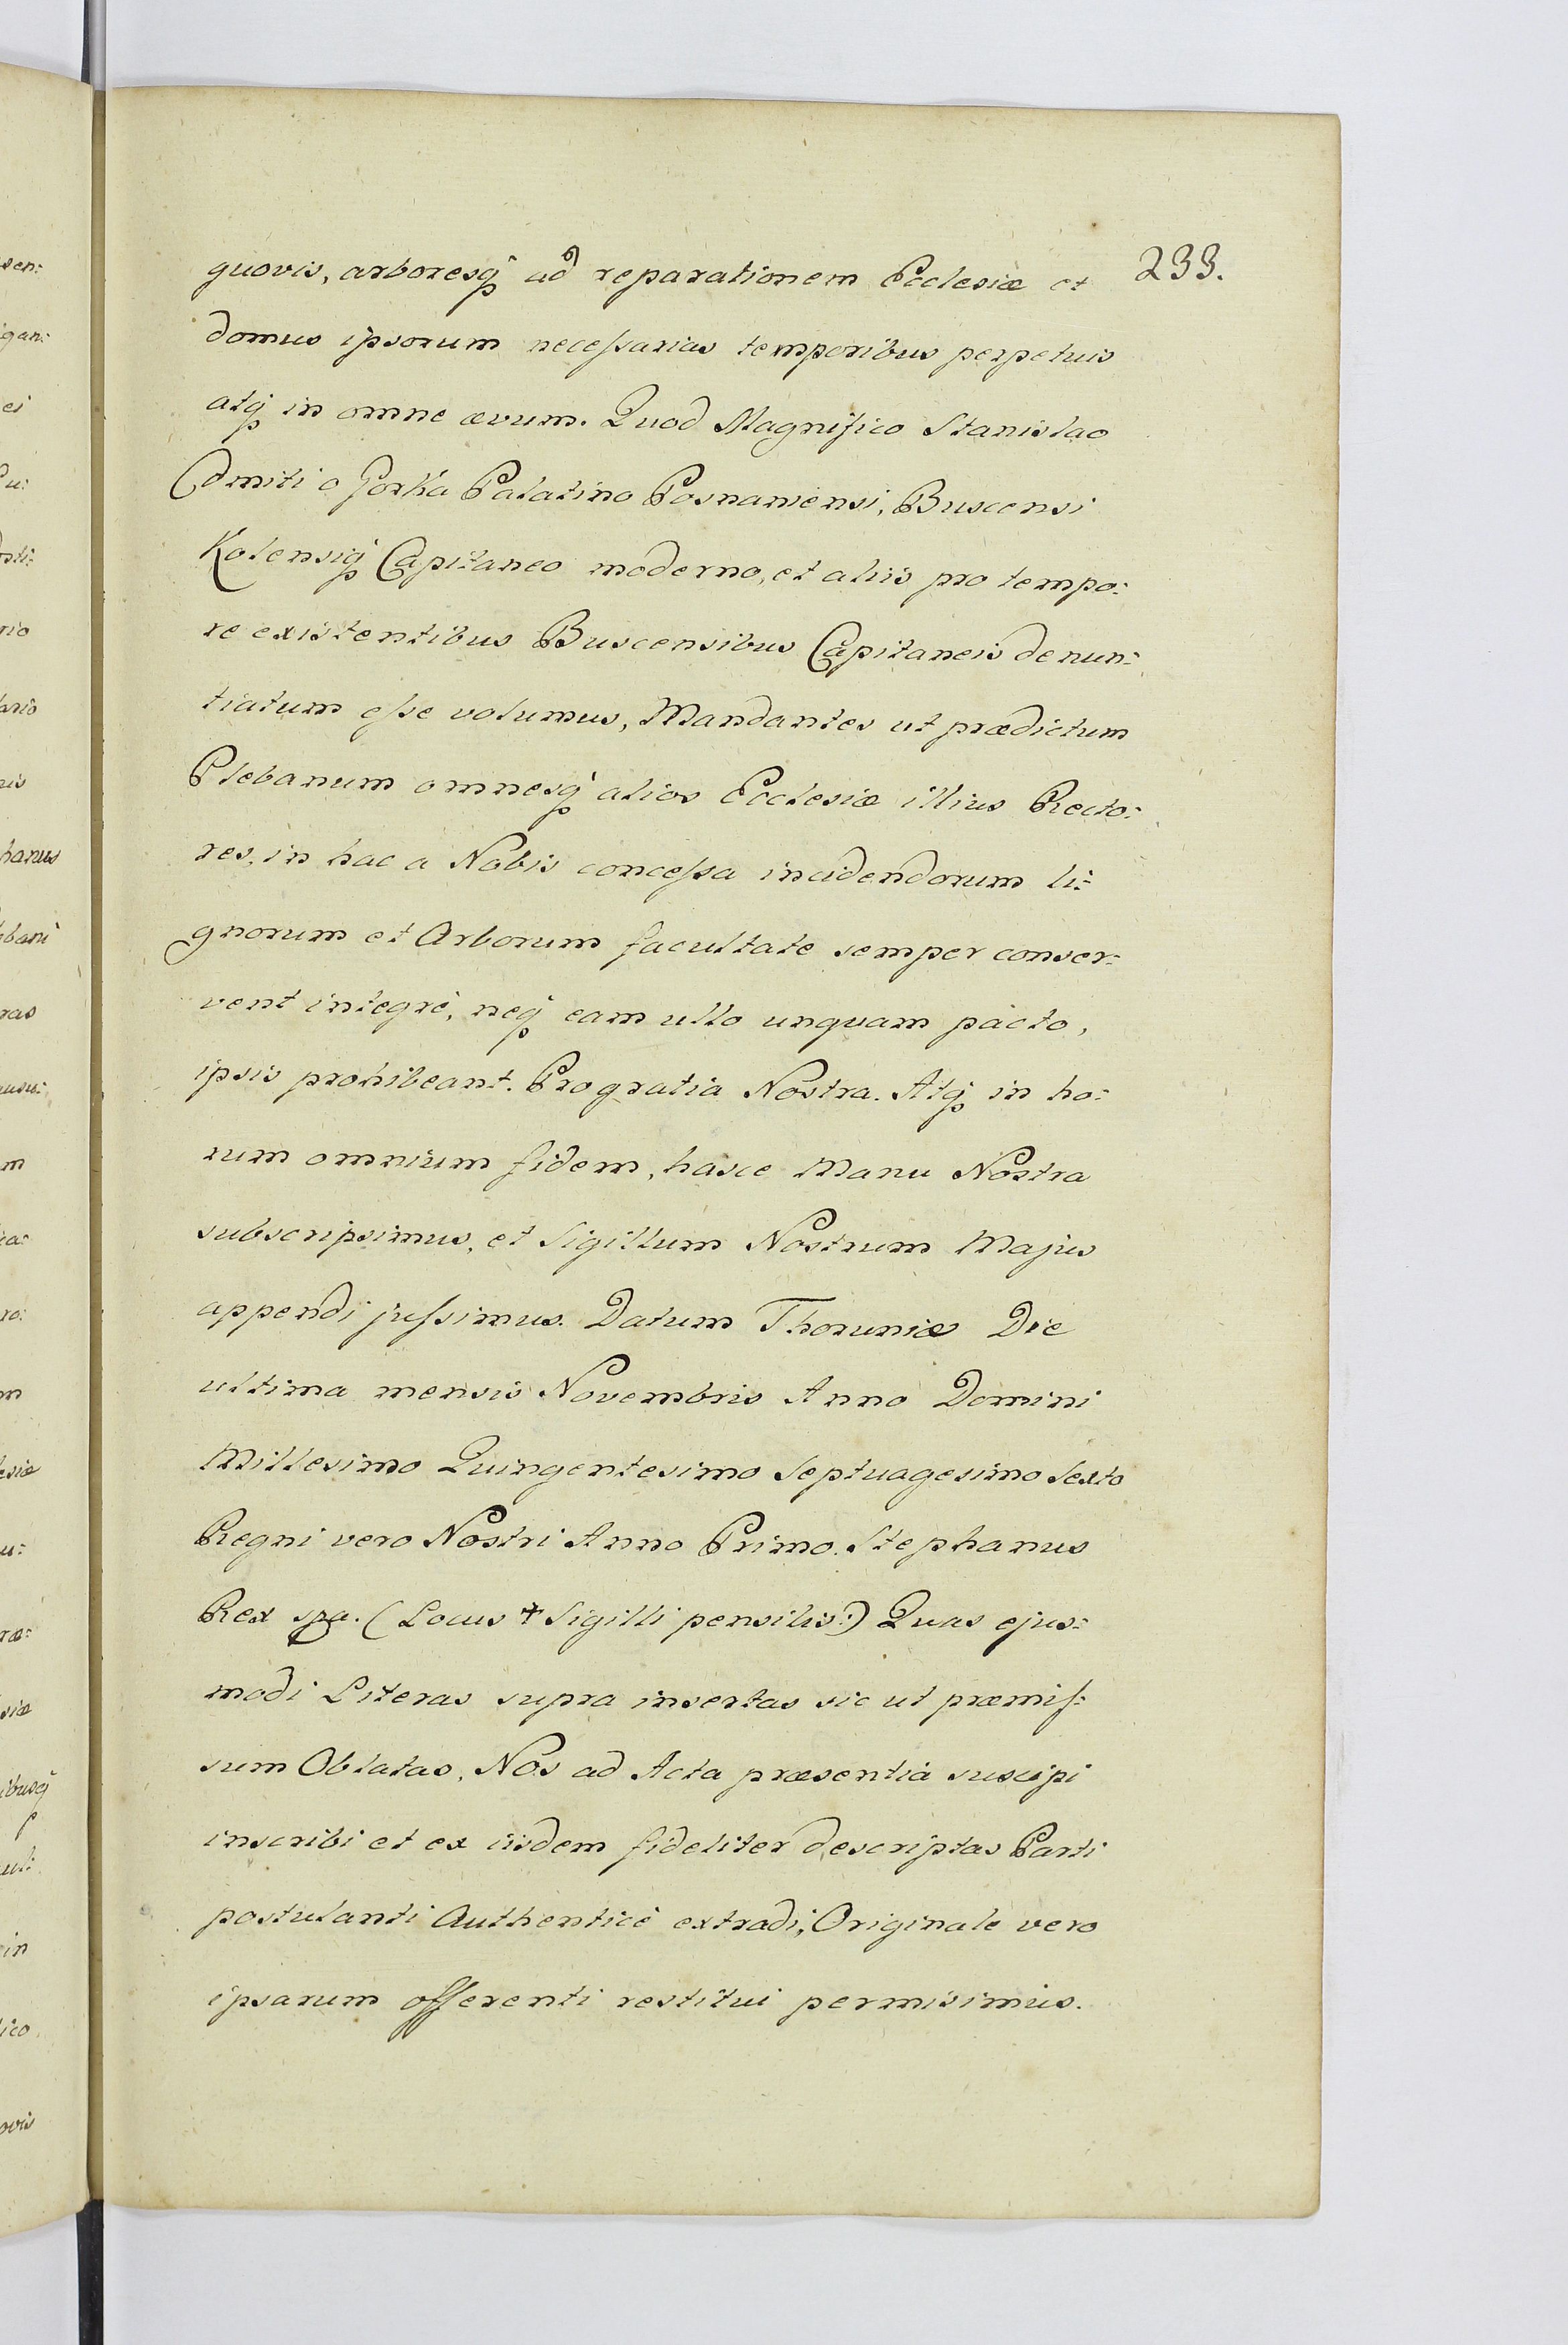 quovis, arboresq̃ ad reparationem Ecclesiæ et 233.
domus ipsorum neceſsarias temporibus perpetuis
atq̃ in omne ævum. Quod Magnifico Stanislao
Comiti a Gorka Palatino Posnaniensi, Buscensi
Kolensiq̃ Capitaneo moderno, et aliis pro tempo:
re existentibus Buscensibus Capitaneis denun:
tiatum eſse volumus, Mandantes ut prædictum
Plebanum omnesq̃ alios Ecclesiæ illius Recto:
res, in hac a Nobis conceſsa incidendorum li:
gnorum et Arborum facultate semper conser:
vent integrè, neq̃ eam ullo unquam pacto,
ipsis prohibeant. Pro gratia Nostra. Atq̃ in ho:
rum omnium fidem, hasce Manu Nostra
subscripsimus, et Sigillum Nostrum Majus
appendi juſsimus. Datum Thoruniæ Die
ultima mensis Novembris Anno Domini
Millesimo Quingentesimo Septuagesimo Sexto
Regni vero Nostri Anno Primo. Stephanus
Rex (Locus ✝ Sigilli pensilis:) Quas ejus:
modi Literas supra insertas sic ut præmiſ:
sum Oblatas, Nos ad Acta præsentia suscipi
inscribi et ex iisdem fideliter descriptas Parti
postulanti Authenticè extradi, Originale vero
ipsarum offerenti restitui permisimus.